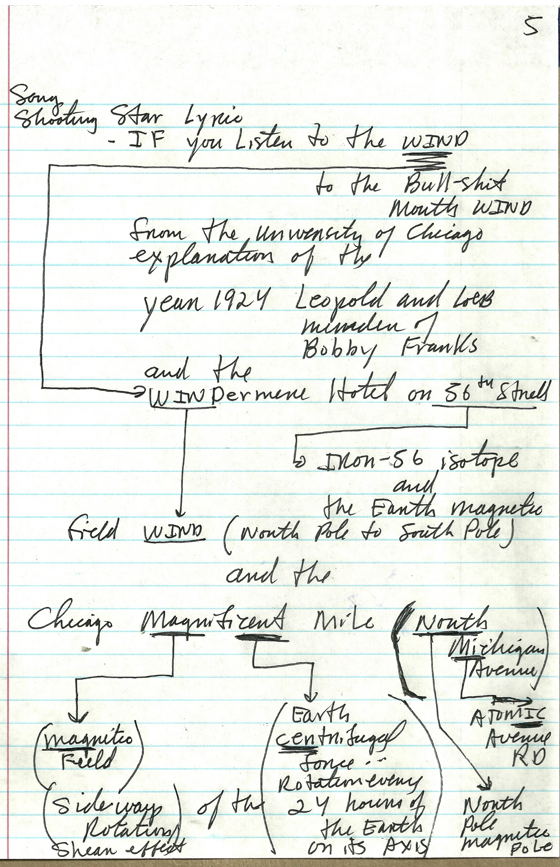 5
Song
Shooting Star Lyric
- IF you Listen to the WIND
to the Bull-shit
Mouth WIND
from the University of Chicago
explanation of the
year 1924 Leopold and Loeb
murder of
Bobby Franks
and the
WINDermere Hotel on 56th Street
Iron-56 isotope
and
the Earth magnetic
field WIND (North Pole to South Pole)
and the
Chicago Magnificent Mile (North
Michigan
Avenue)
ATOMIC
Avenue
RD
(magnetic
Field)
(Earth
centrifugal
force ..
Rotation every
24 hours of
the Earth
on its AXIS)
(Sideways
Rotation)
Shear effect
of the
North
Pole
magnetic
Pole